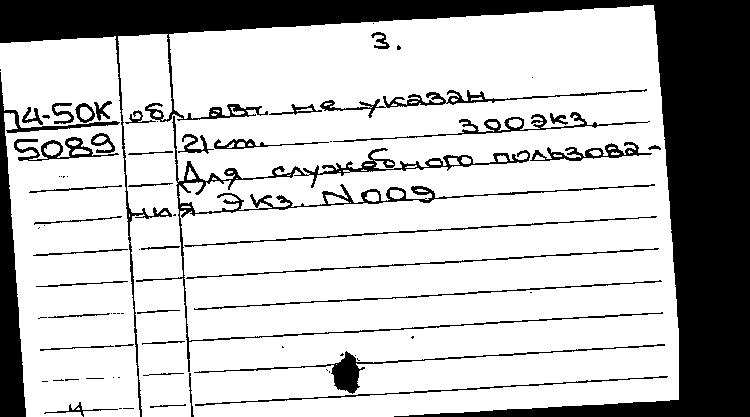 3.
74-50К обл. авт. не указан.
5089 21 cm. 300 экз.
Для служебного пользова-
ния Экз. N009
4